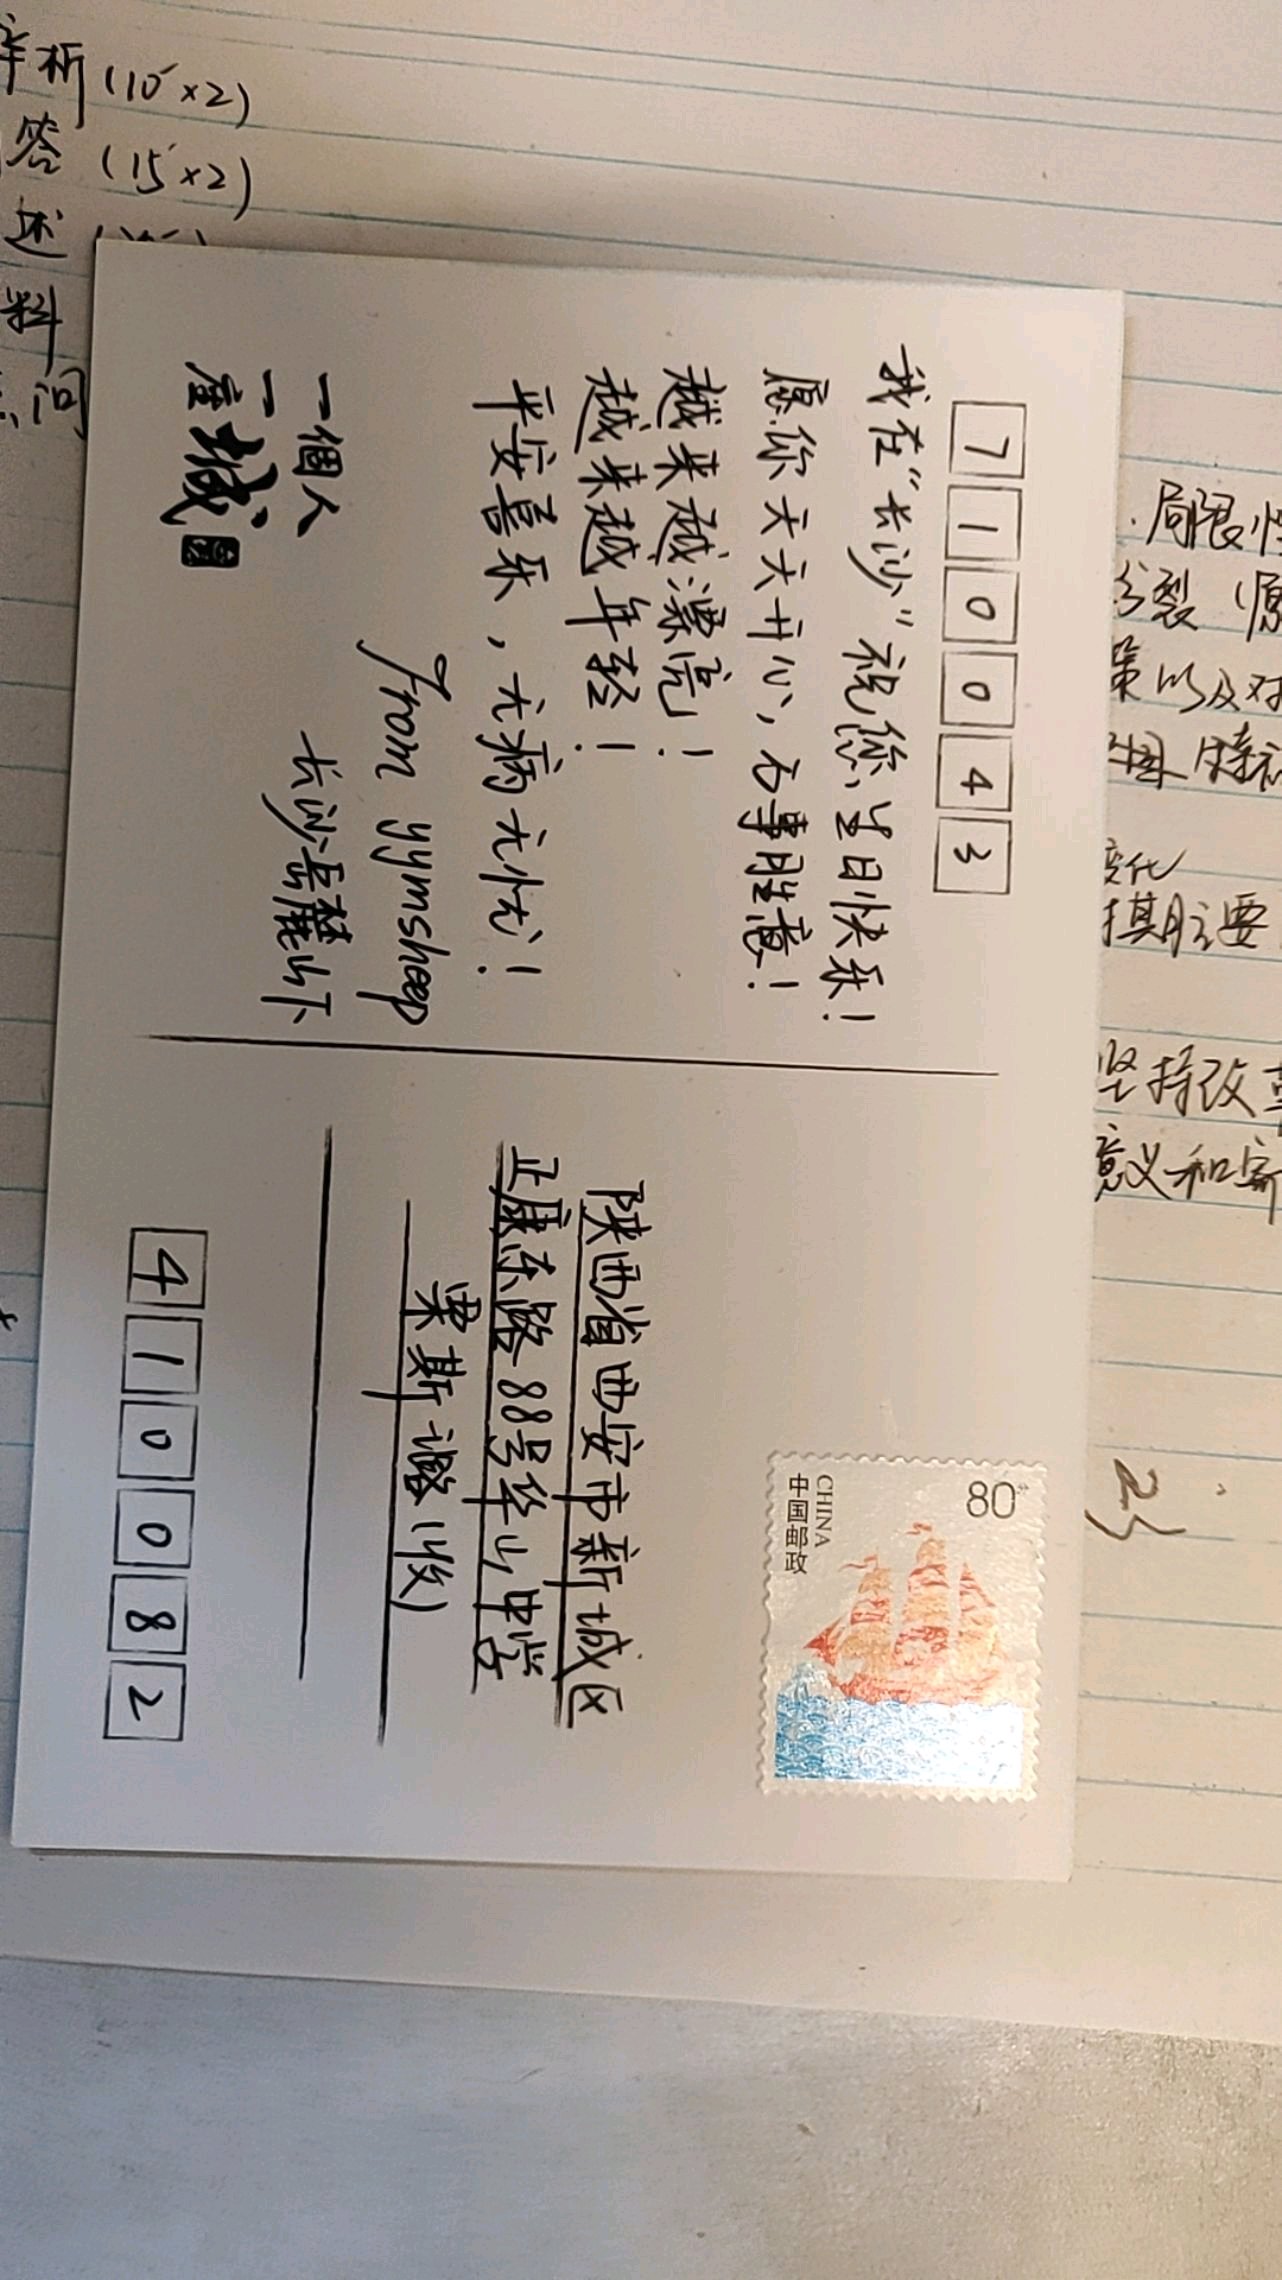 710043
我在“长沙”祝您生日快乐！
愿你天天开心，万事胜意！
越来越漂亮！
越来越年轻！
平安喜乐，无病无忧！
from yymsheep
长沙岳麓山下
一個人
一座城
80分
CHINA
中国邮政
陕西省西安市新城区
正康东路88号华山中学
栗斯璐（收）
410082
析（10'×2）
答（15'×2）
述
料
问
局限性
分裂（原
策以及对
变化
其主要
坚持改革
意义和